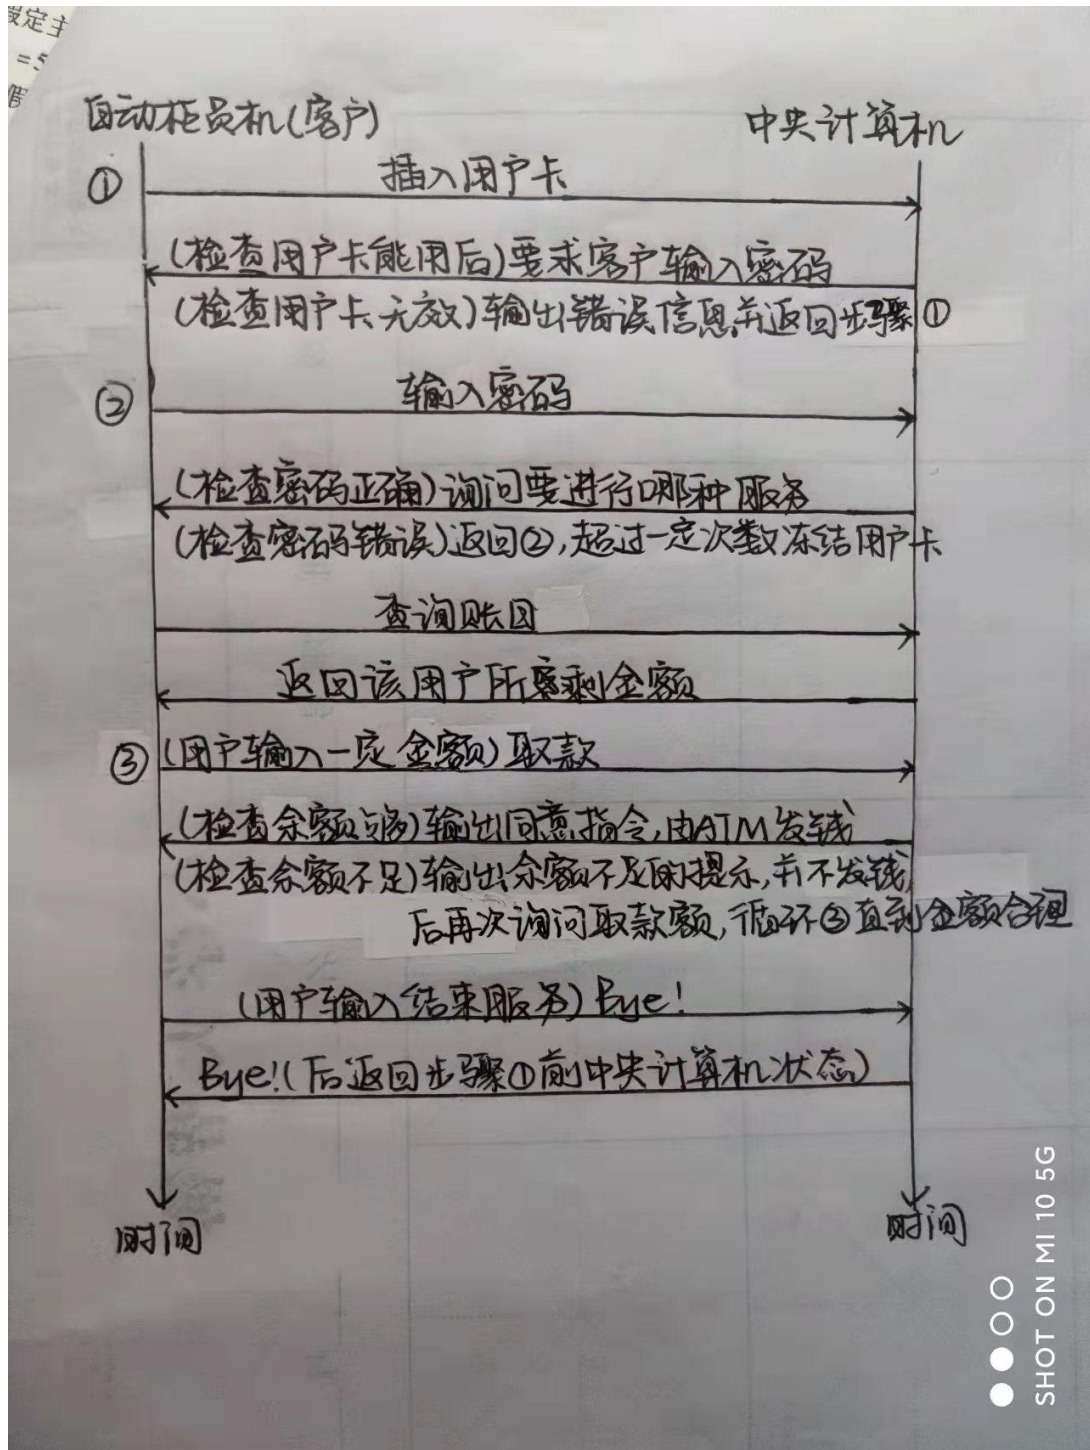 假定主
=5
假
自动柜员机(客户)
中央计算机
① 插入用户卡
(检查用户卡能用后)要求客户输入密码
(检查用户卡无效)输出错误信息并返回步骤①
② 输入密码
(检查密码正确)询问要进行哪种服务
(检查密码错误)返回②,超过一定次数冻结用户卡
查询账目
返回该用户所剩金额
③ (用户输入一定金额)取款
(检查余额够)输出同意指令,由ATM发钱
(检查余额不足)输出余额不足的提示,并不发钱,
后再次询问取款额,循环③直到金额合理
(用户输入结束服务)Bye!
Bye!(后返回步骤①前中央计算机状态)
时间
时间
SHOT ON MI 10 5G